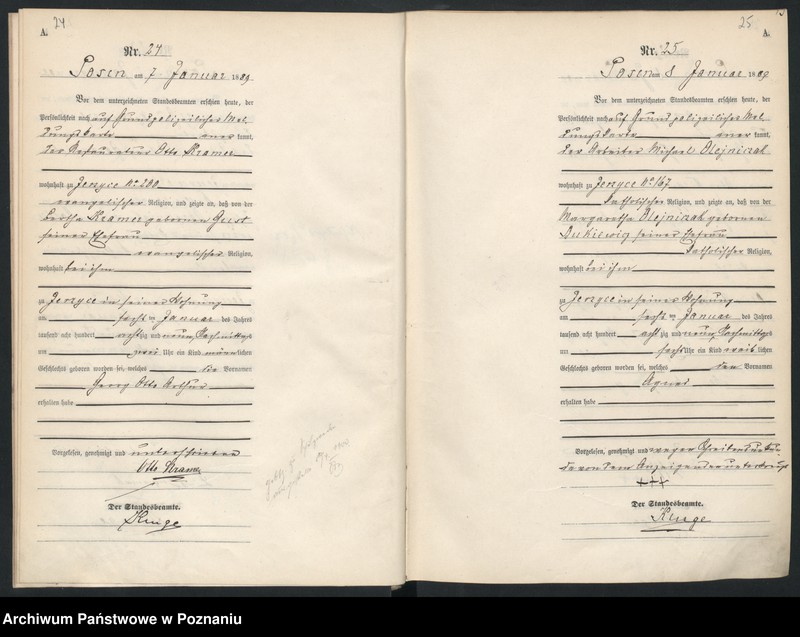 24
A.
Nr. 24
Posen am 7 Januar 1889
Vor dem unterzeichneten Standesbeamten erschien heute, der
Persönlichkeit nach auf Grund polizeilicher Mel
dungskarte kannt,
der Restaurateur Otto Kramer
wohnhaft zu Jerzyce No 200
evangelischer Religion, und zeigte an, daß von der
Bertha Kramer geborenen Gust
seiner Ehefrau
evangelischer Religion,
wohnhaft bei ihm
zu Jerzyce in seiner Wohnung
am Januar des Jahres
tausend acht hundert achtzig und neun, Nachmittags
um Uhr ein Kind männlichen
Geschlechts geboren worden sei, welches die Vornamen
Georg Otto Arthur
erhalten habe
Vorgelesen, genehmigt und unterschrieben
Otto Kramer
Der Standesbeamte.
Kluge
25
A.
Nr. 25
Posen am 8 Januar 1889
Vor dem unterzeichneten Standesbeamten erschien heute, der
Persönlichkeit nach auf Grund polizeilicher Mel
dungskarte kannt,
der Arbeiter Michael Olejniczak
wohnhaft zu Jerzyce No 167
katholischer Religion, und zeigte an, daß von der
Margaretha Olejniczak geborenen
seiner Ehefrau
katholischer Religion,
wohnhaft bei ihm
zu Jerzyce in seiner Wohnung
am Januar des Jahres
tausend acht hundert achtzig und neun, Nachmittags
um sechs Uhr ein Kind weiblichen
Geschlechts geboren worden sei, welches den Vornamen
Agnes
erhalten habe
Vorgelesen, genehmigt und wegen
von dem Anzeigenden unterkreuzt
+++
Der Standesbeamte.
Kluge
Archiwum Państwowe w Poznaniu